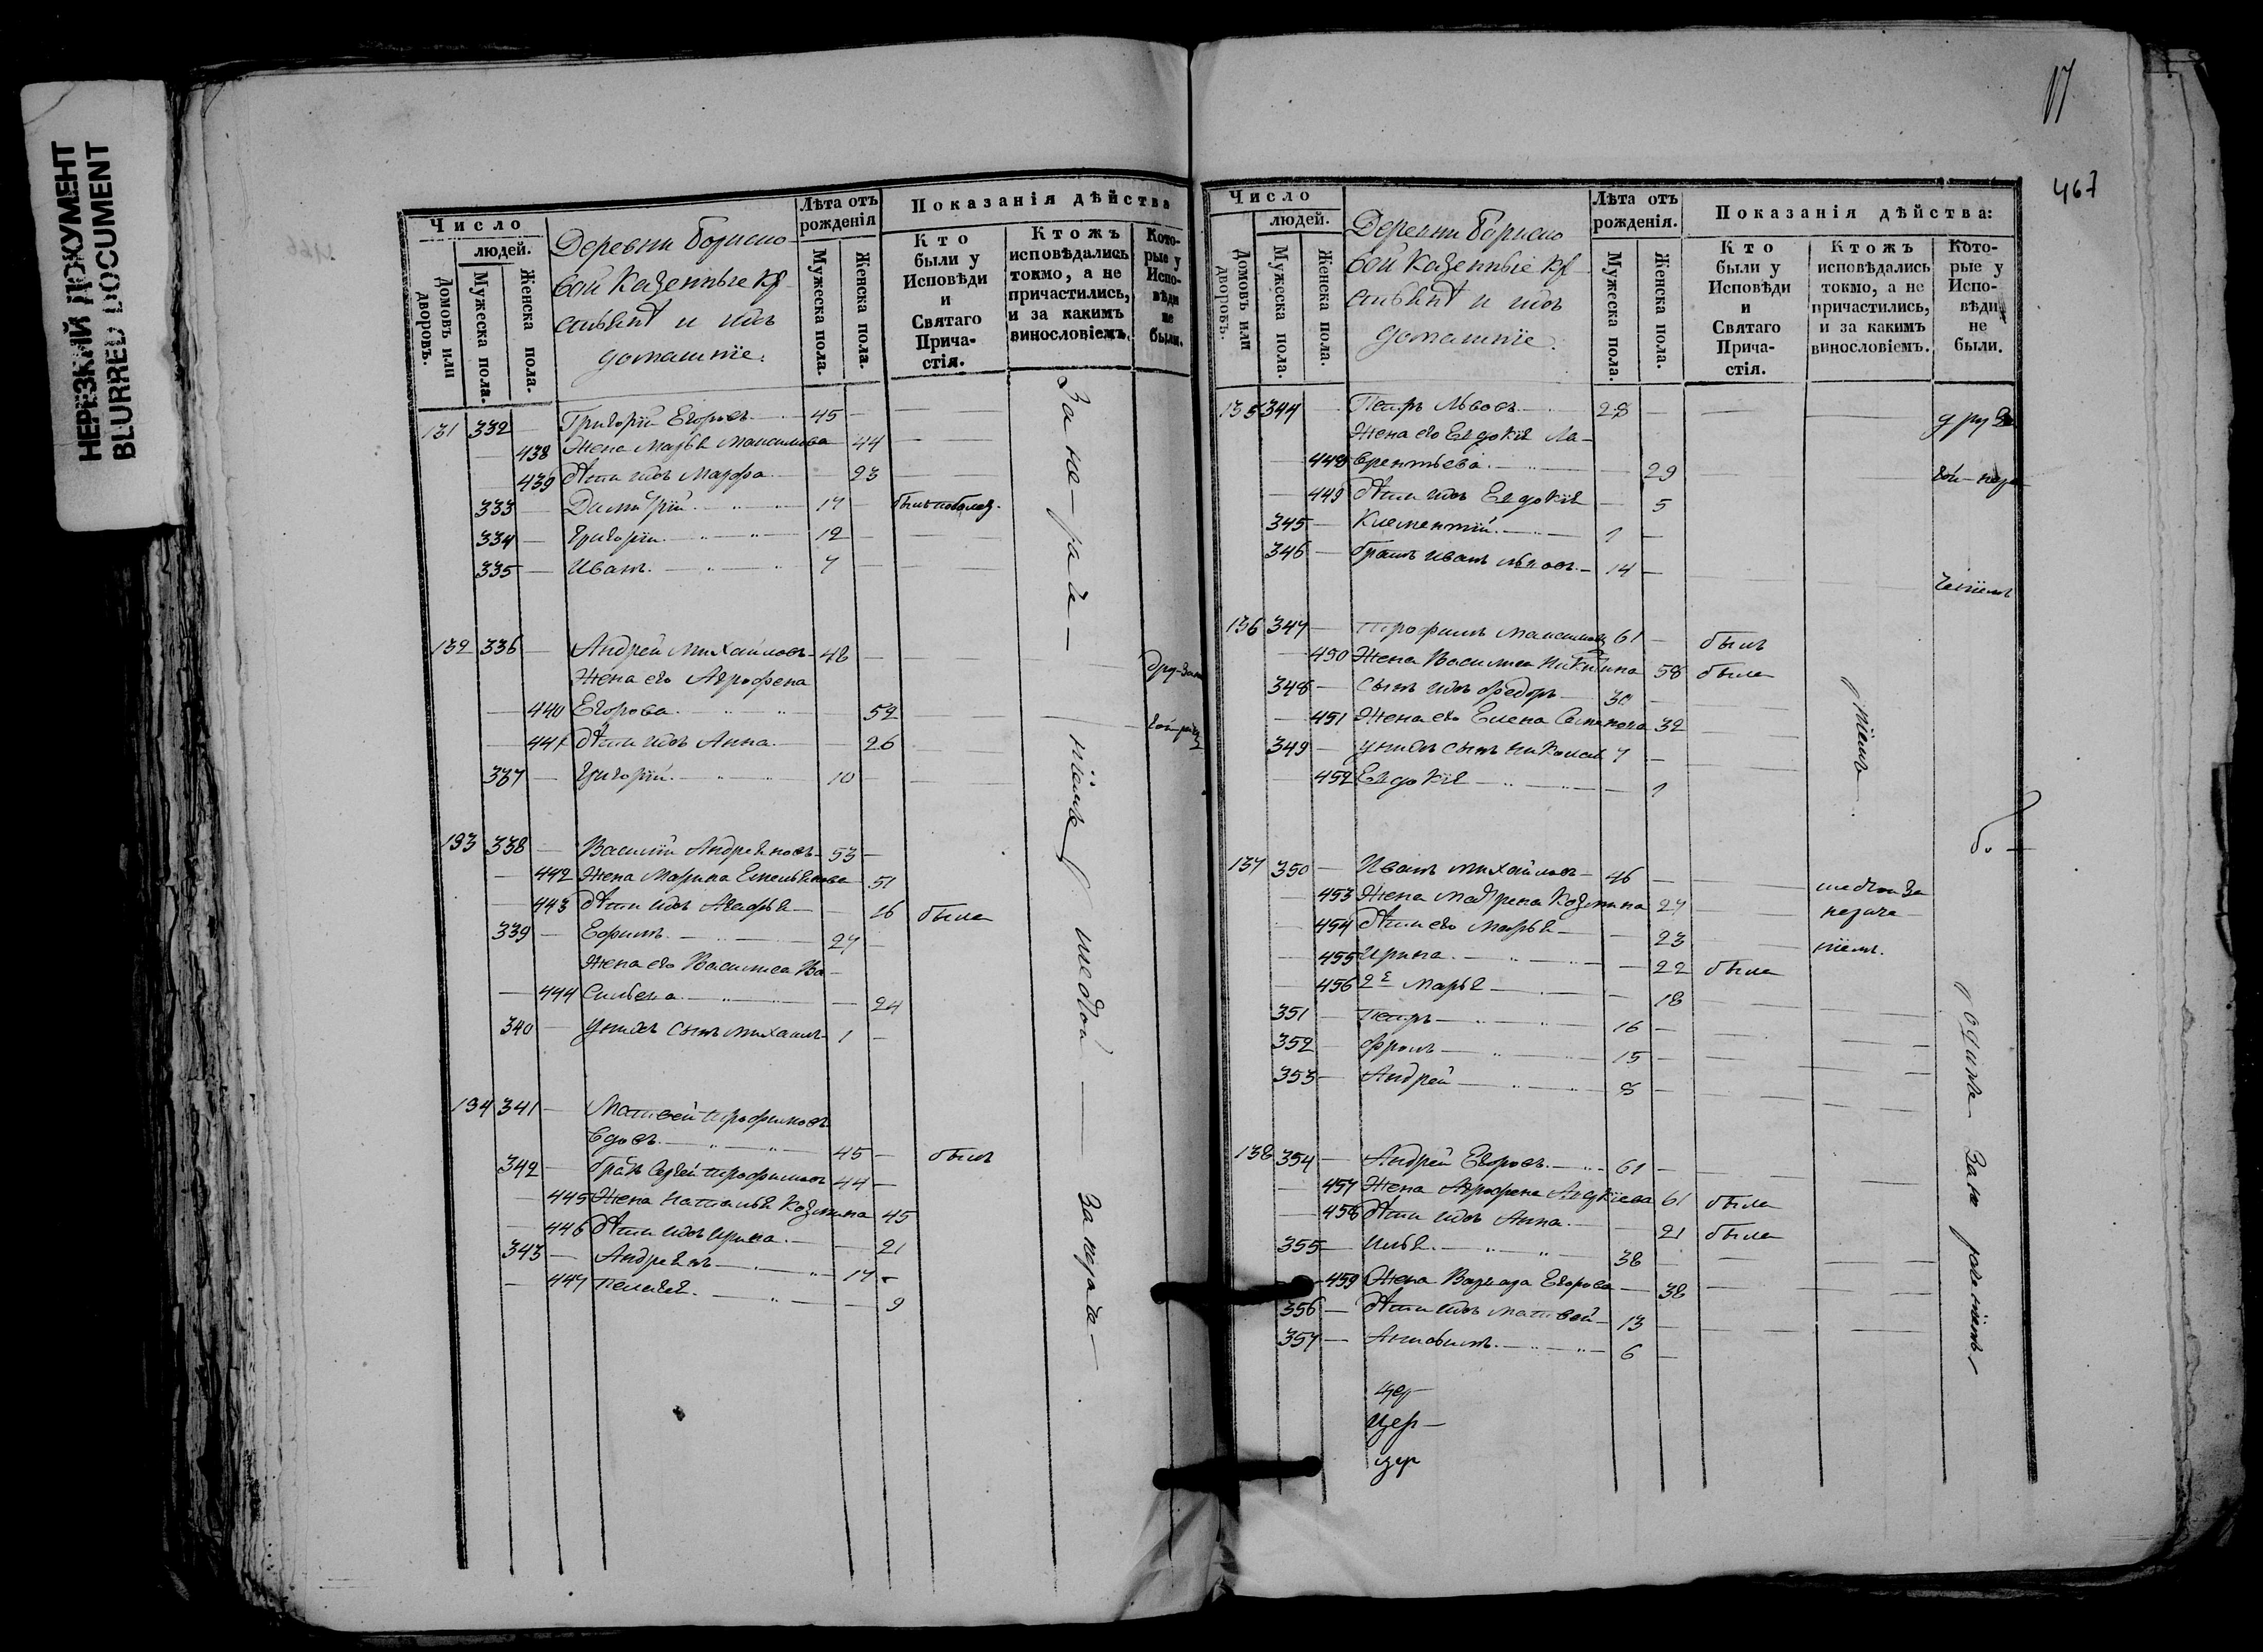 НЕРЕЗКИЙ ДОКУМЕНТ
BLURRED DOCUMENT
Число
людей.
Домовъ или дворовъ.
Мужеска пола.
Женска пола.
Деревни Борисо-
вой Казенные Кр-
и ихъ
домашніе.
Лѣта отъ рожденія
Мужеска пола.
Женска пола.
Показанія дѣйства
Кто были у Исповѣди и Святаго Причастія.
Ктожъ исповѣдались токмо, а не причастились, и за какимъ винословіемъ.
Которые у Исповѣди не были.
131 332 — Григорій Егоровъ 45 —
— 438 Жена Марья Максимова 44
— 439 дѣти ихъ Марфа — 23
333 — Димитрій 17
334 — Григорій 12 —
335 — Иванъ 7
132 336 — Андрей Михайловъ 48 —
Жена его Агрофена
— 440 Егорова 52
— 441 дѣти ихъ Анна 26
337 — Григорій 10
133 338 — Василій Андреяновъ 53 —
— 442 Жена Марина Емельянова 51
— 443 дѣти ихъ Агафья — 16 была
339 — Ефимъ 27 —
Жена его Василиса Ва-
— 444 сильева — 24
340 — у нихъ сынъ Михаилъ 1 —
134 341 — Матвей Трофимовъ
вдовъ 45 — былъ
342 — братъ Сергей Трофимовъ 44 —
— 445 Жена Наталья Козмина 45
— 446 дѣти ихъ Ирина — 21
343 — Андреянъ 17
— 447 Пелагея — 9
17
467
Число
людей.
Домовъ или дворовъ.
Мужеска пола.
Женска пола.
Деревни Борисо
вой Казенные Кр-
и ихъ
домашніе.
Лѣта отъ рожденія.
Мужеска пола.
Женска пола.
Показанія дѣйства:
Кто были у Исповѣди и Святаго Причастія.
Ктожъ исповѣдались токмо, а не причастились, и за какимъ винословіемъ.
Которые у Исповѣди не были.
135 344 Петръ Львовъ 28 —
Жена его Евдокія Ла-
— 448 врентьева — 29
— 449 дѣти ихъ Евдокія — 5
345 — Климентій 1 —
346 — братъ Иванъ Львовъ 14 —
136 347 — Трофимъ Максимовъ 61 — былъ
— 450 Жена Василиса Никитина 58 была
348 — сынъ ихъ Федоръ 30 —
— 451 Жена его Елена Семенова 32
349 — у нихъ сынъ Николай 7 —
452 Евдокія — 1
137 350 — Иванъ Михайловъ 46 —
— 453 Жена Матрена Козмина 27
— 454 дѣти его Марья — 23
— 455 Ирина — 22 была
— 456 2я Марья — 18
351 — Петръ 16 —
352 — Фролъ 15 —
353 — Андрей 8 —
138 354 — Андрей Егоровъ 61 —
— 457 Жена Агрофена 61 была
— 458 дѣти ихъ Анна 21 была
355 — Илья 38
— 459 Жена Варвара Егорова — 38
356 — дѣти ихъ Матвей 13 —
357 — 6 —
цер
Цер